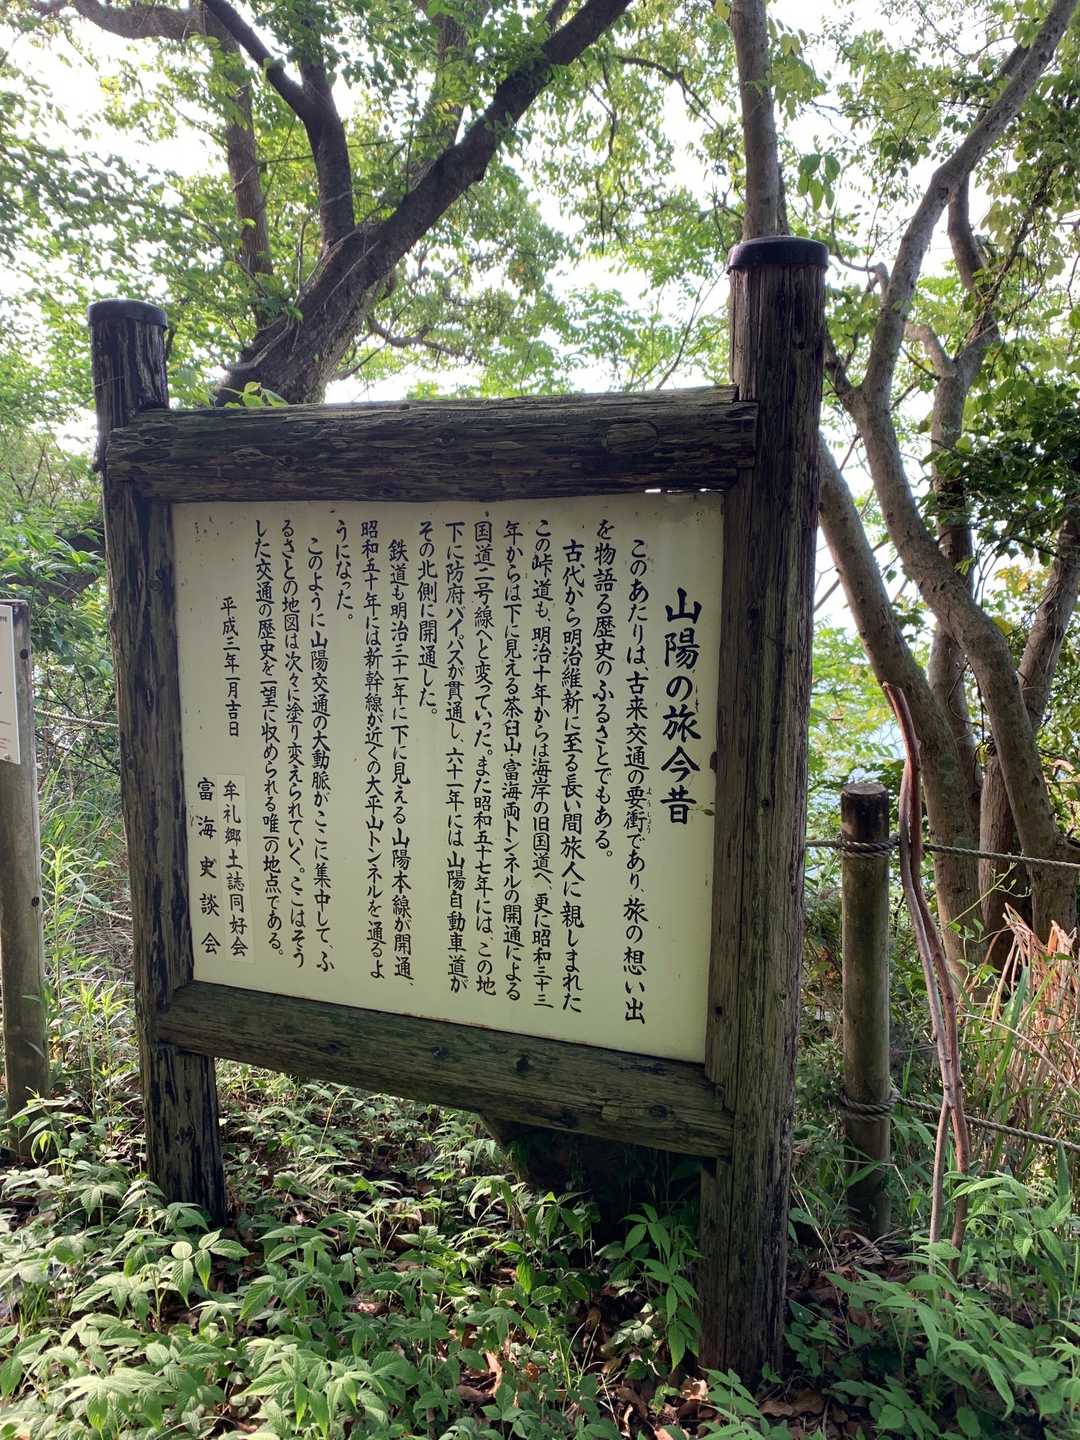 山陽の旅今昔
このあたりは、古来交通の要衝であり、旅の想い出
ようしょう
を物語る歴史のふるさとでもある。
古代から明治維新に至る長い間旅人に親しまれた
この峠道も、明治十年からは海岸の旧国道へ、更に昭和三十三
年からは下に見える茶臼山・富海両トンネルの開通による
国道二号線へと変っていった。また昭和五十七年には、この地
下に防府バイパスが貫通し、六十一年には、山陽自動車道が
その北側に開通した。
鉄道も明治三十一年に下に見える山陽本線が開通、
昭和五十年には新幹線が近くの大平山トンネルを通るよ
うになった。
このように山陽交通の大動脈がここに集中して、ふ
るさとの地図は次々に塗り変えられていく。ここはそう
した交通の歴史を一望に収められる唯一の地点である。
平成三年一月吉日
牟礼郷土誌同好会
富海史談会